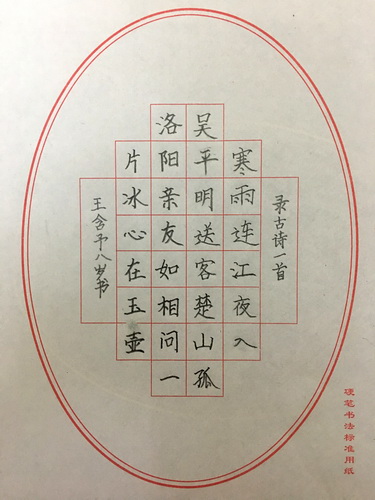 录古诗一首
寒雨连江夜入
吴平明送客楚山孤
洛阳亲友如相问一
片冰心在玉壶
王含予八岁书
硬笔书法标准用纸